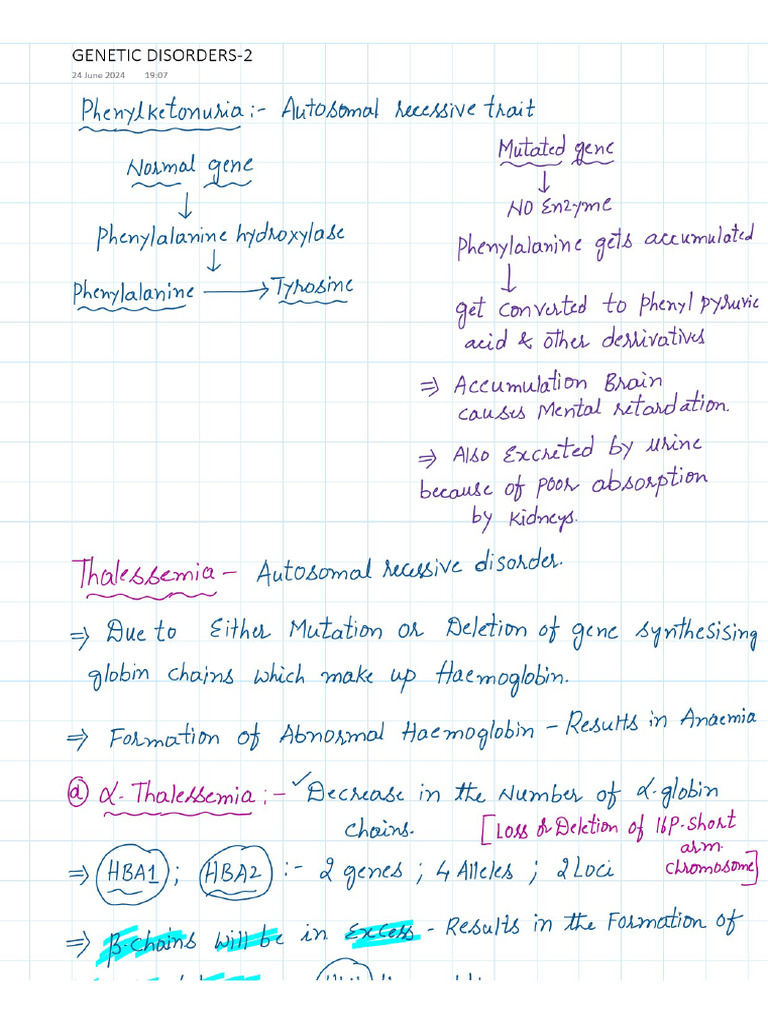 GENETIC DISORDERS-2
24 June 2024 19:07
Phenylketonuria :- Autosomal recessive trait
Normal gene
Phenylalanine hydroxylase
Phenylalanine → Tyrosine
Mutated gene
NO Enzyme
Phenylalanine gets accumulated
get converted to Phenyl pyruvic
acid & other derrivatives
⇒ Accumulation Brain
causes Mental retardation.
⇒ Also Excreted by urine
because of poor absorption
by kidneys.
Thalessemia - Autosomal recessive disorder.
⇒ Due to Either Mutation or Deletion of gene synthesising
globin chains which make up Haemoglobin.
⇒ Formation of Abnormal Haemoglobin - Results in Anaemia
a α-Thalessemia :- ✓Decrease in the Number of α-globin
chains.
[Loss or Deletion of 16P-Short
arm.
chromosome]
⇒ HBA1 ; HBA2 :- 2 genes ; 4 Alleles ; 2 Loci
⇒ β-chains will be in Excess - Results in the Formation of